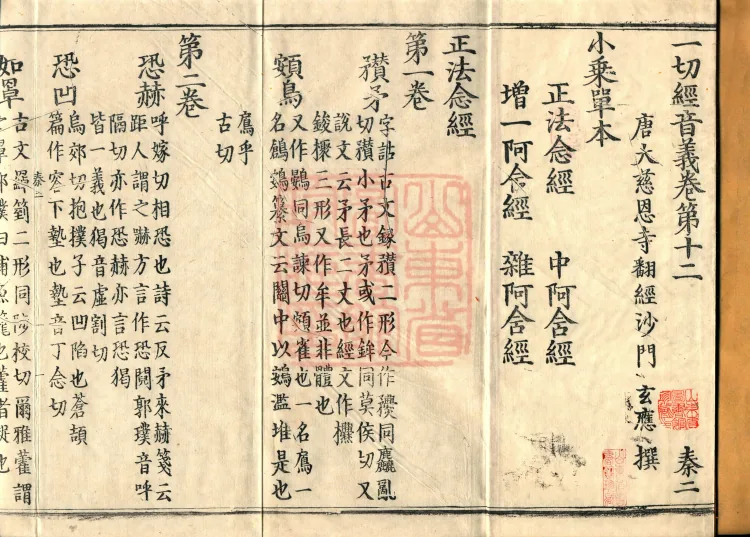 一切經音義卷第十二 秦二
唐大慈恩寺翻經沙門玄應撰
小乘單本
正法念經 中阿含經
增一阿含經 雜阿含經
正法念經
第一卷
穳矛 字詁古文錄穳二形今作同麤亂
切穳小矛也矛或作鉾同莫侯切又
說文云矛長二丈也經文作欑
鋑三形又作牟並非體也
頞鳥 又作鷃同烏諫切頞雀也一名鳸一
名鴳纂文云關中以鴳濫堆是也
鳸乎
古切
第二卷
恐赫 呼嫁切相恐也詩云反矛來赫箋云
距人謂之嚇方言作恐鬩郭璞音呼
隔切亦作恐赫亦言恐猲
皆一義也猲音虛割切
恐凹 烏郊切抱撲子云凹陷也蒼頡
篇作下墊也墊音丁念切
秦二
如罩 古文二形同陟校切爾雅藿謂
之罩郭璞曰捕魚籠也藿者也
山東省